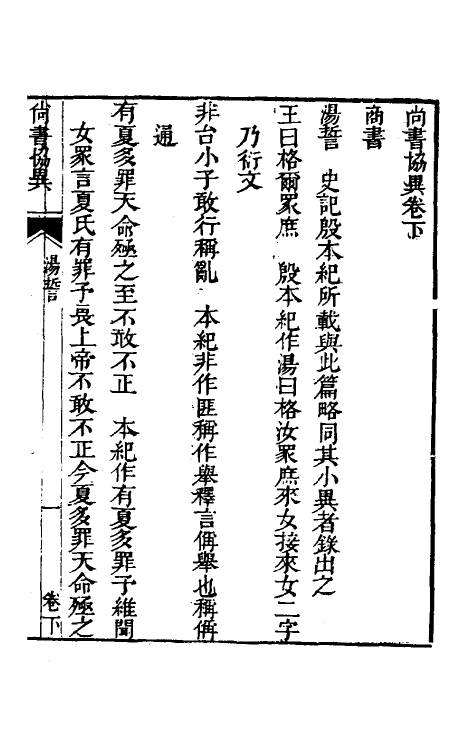 尚書協異卷下
商書
湯誓　史記殷本紀所載與此篇略同其小異者錄出之
王曰格爾眾庶　殷本紀作湯曰格汝眾庶來女接來女二字
乃衍文
非台小子敢行稱亂　本紀非作匪稱作舉釋言偁舉也稱偁
通
有夏多罪天命殛之至不敢不正　本紀作有夏多罪予維聞
女眾言夏氏有罪予畏上帝不敢不正今夏多罪天命殛之
尚書協異　湯誓　一　卷下